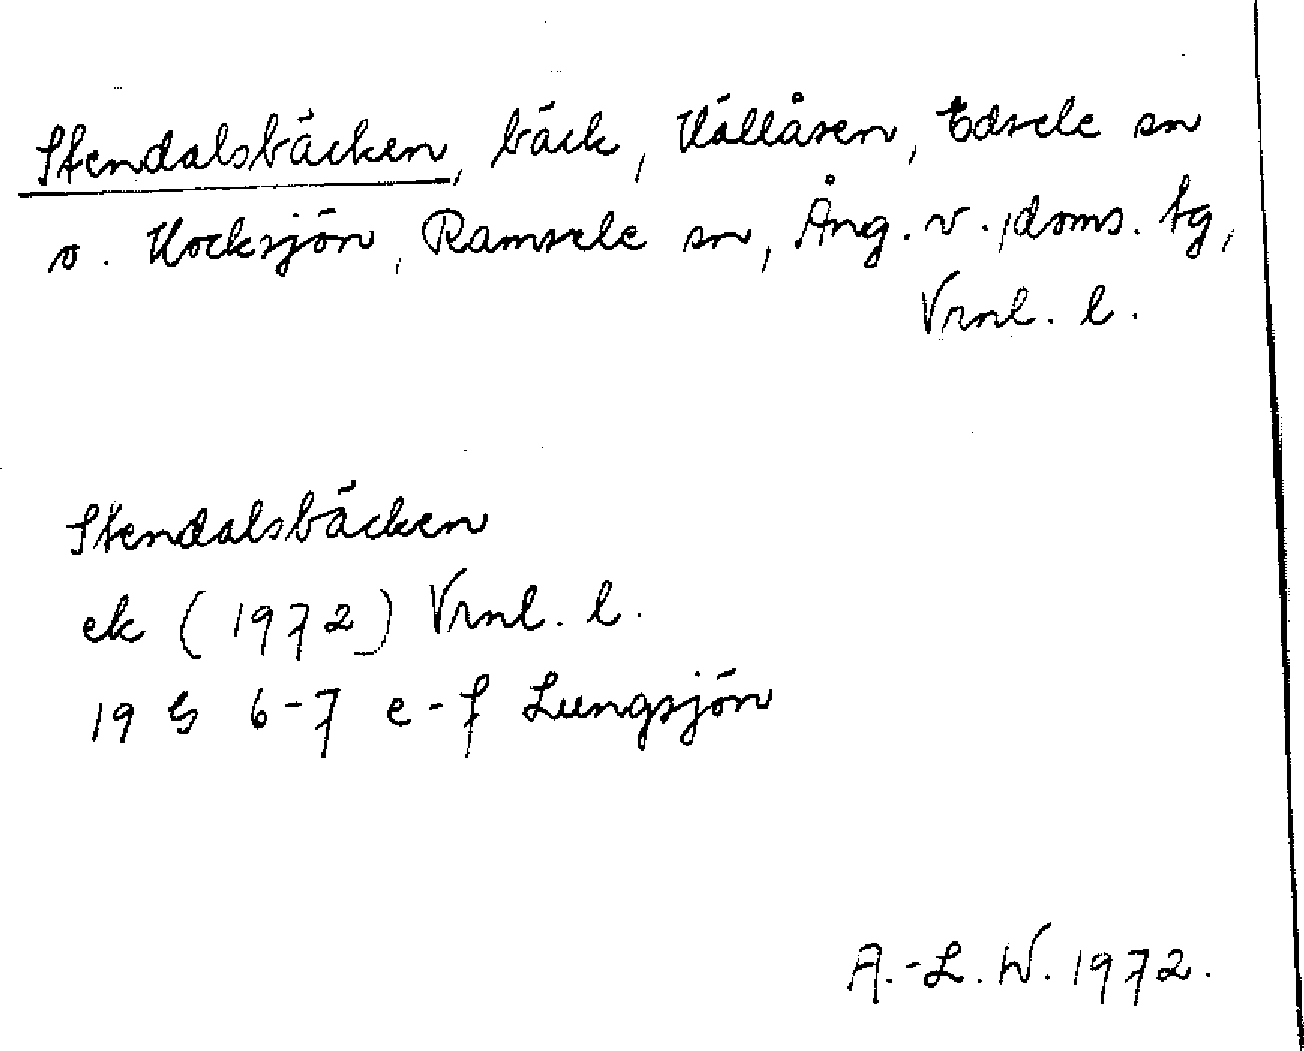 Stendalsbäcken, bäck, Hällåsen, Edsele sn
o. Hocksjön, Ramsele sn, Ång. v. doms. tg,
Vrnl. l.
Stendalsbäcken
ek (1972) Vrnl. l.
19 G 6-7 e-f Lungsjön
A.-L. W. 1972.